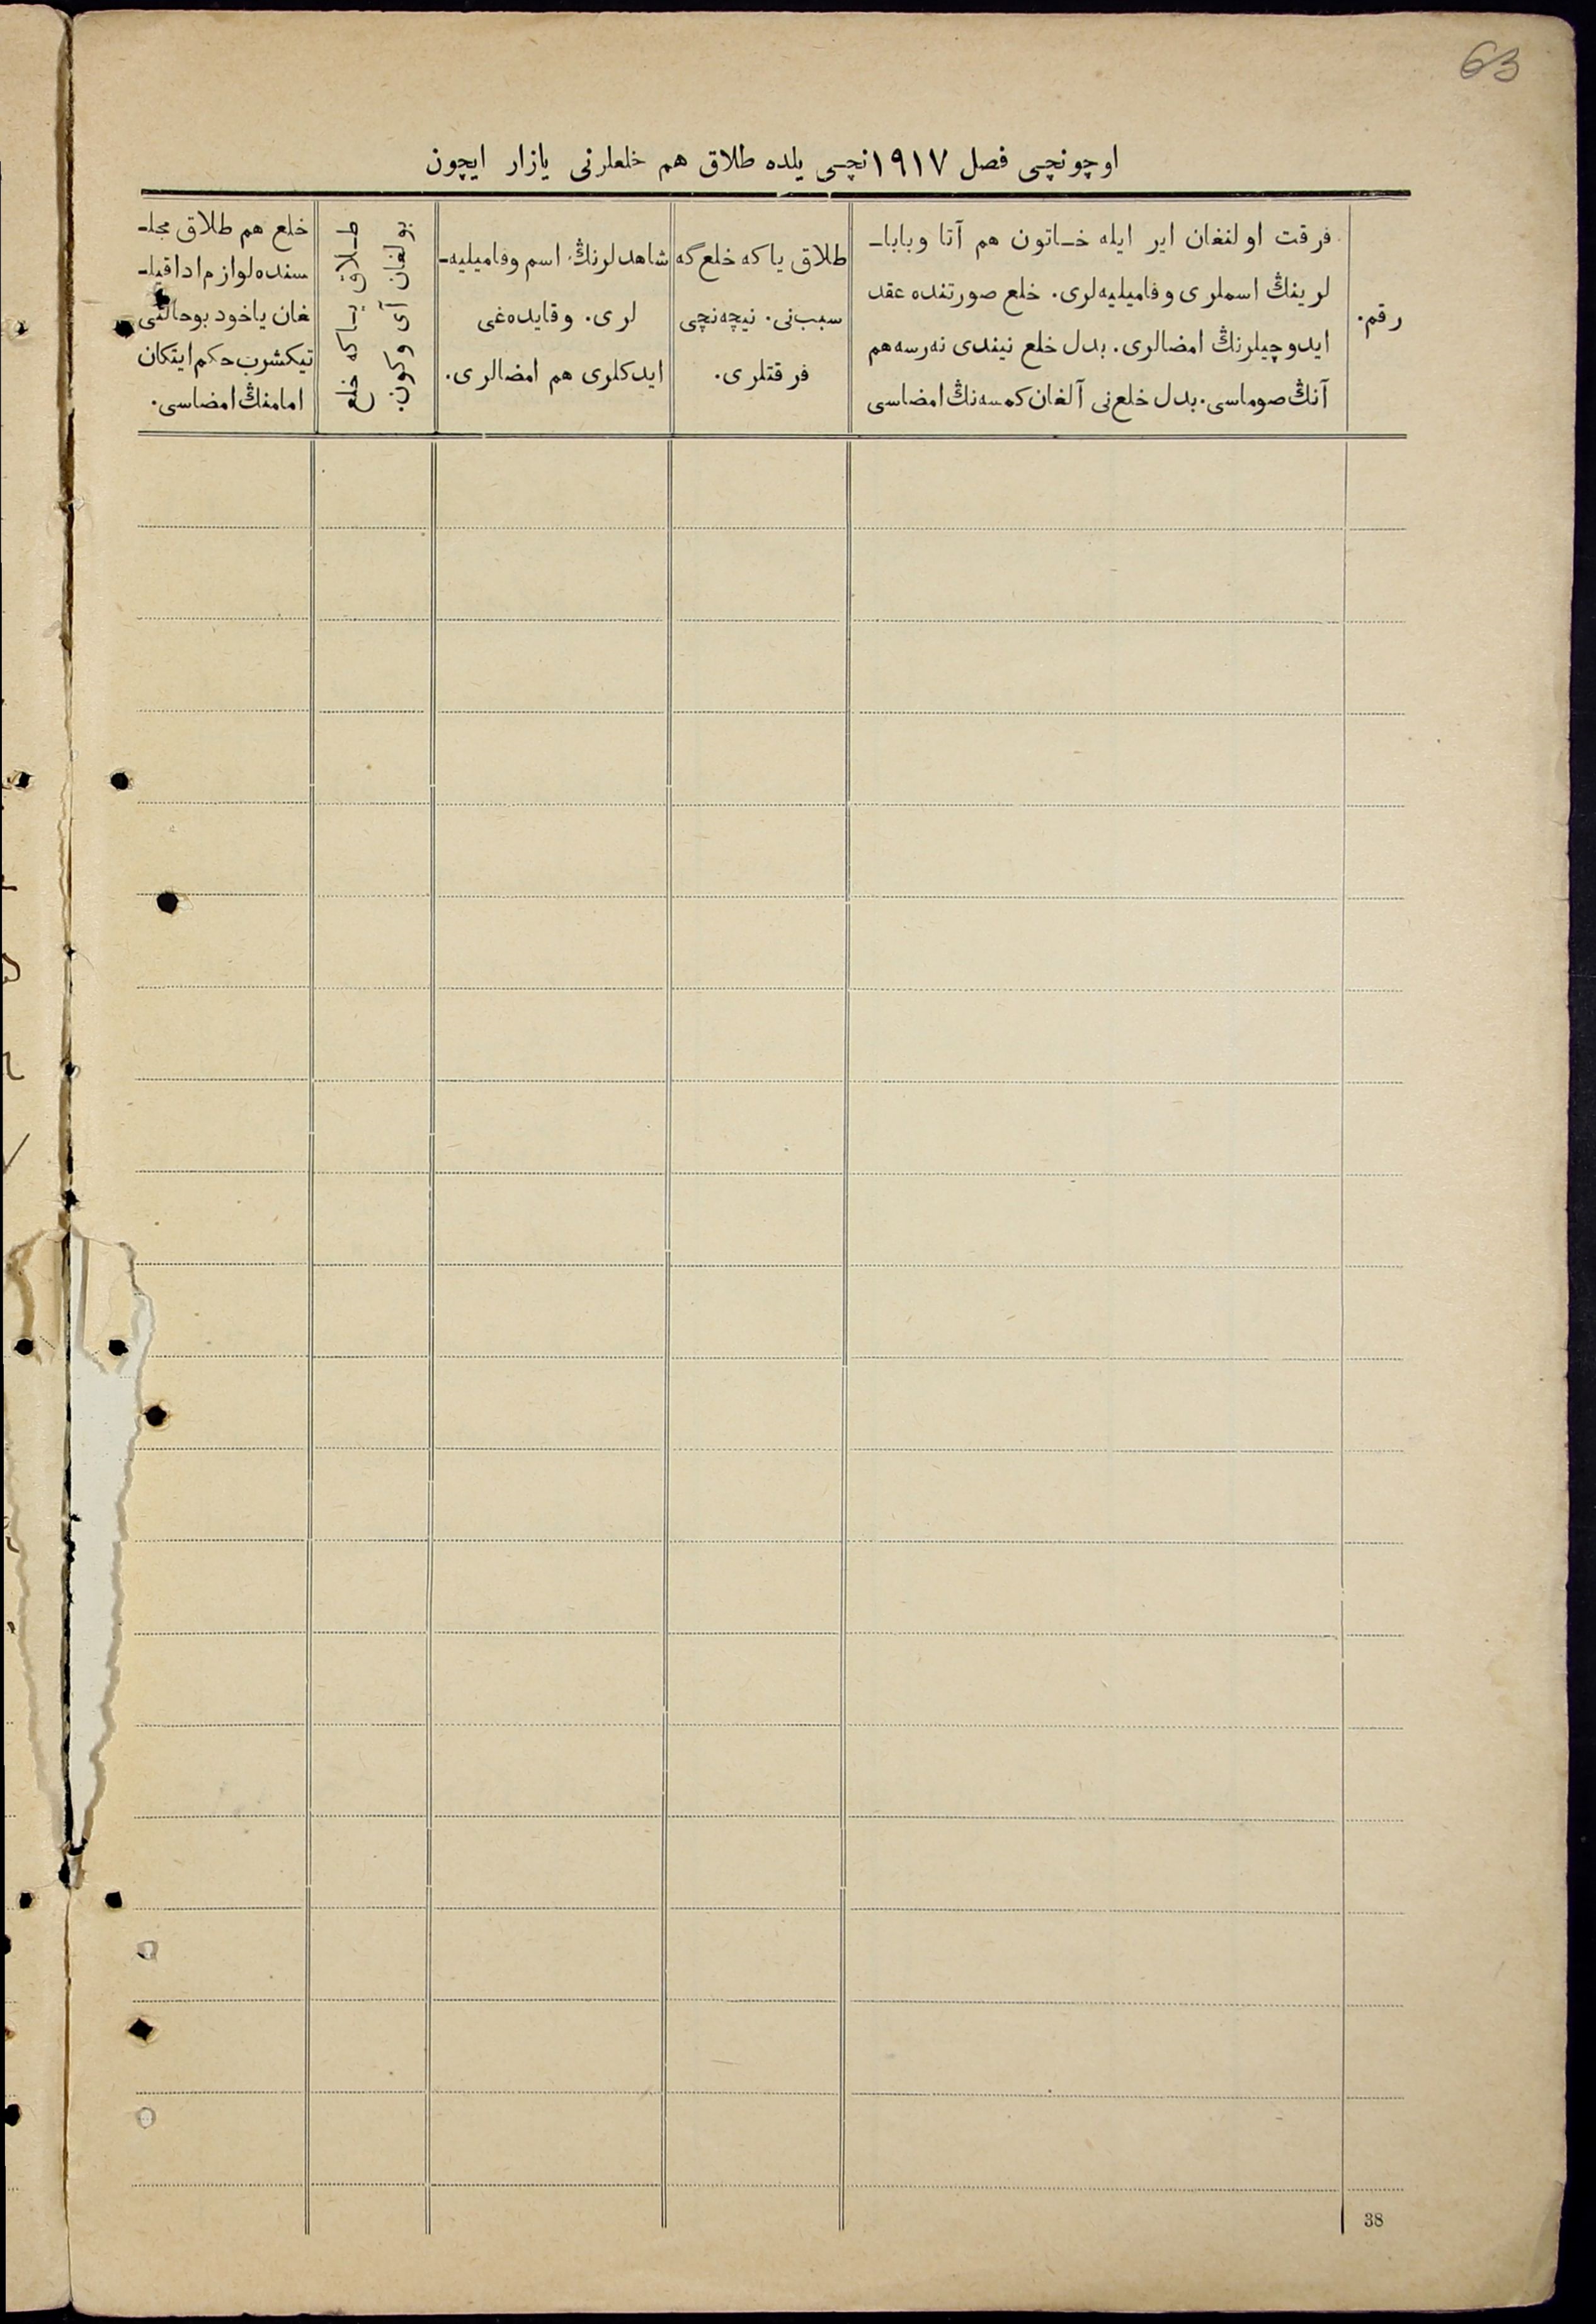 63
اوچونچی فصل ١٩١٧نچی یلده طلاق هم خلعلرنی یازار ایچون
رقم.
فرقت اولنغان ایر ایله خاتون هم آتا وبابا-
لرینڭ اسملری وفامیلیه‌لری. خلع صورتنده عقد
ایدوچیلرنڭ امضالری. بدل خلع نیندی نه‌رسه هم
آنڭ صوماسی. بدل خلع‌نی آلغان کمسه‌نڭ امضاسی
طلاق یا که خلع گه
سبب نی. نیچه‌نچی
فرقتلری.
شاهدلرنڭ اسم وفامیلیه-
لری. وقایده‌غی
ایدکلری هم امضالری.
طلاق یا که خلع
بولغان آی وکون.
خلع هم طلاق مجلـ
سنده لوازم ادا قیلـ
غان یاخود بوحالنی
تیکشرب حکم ایتکان
امامنڭ امضاسی.
38